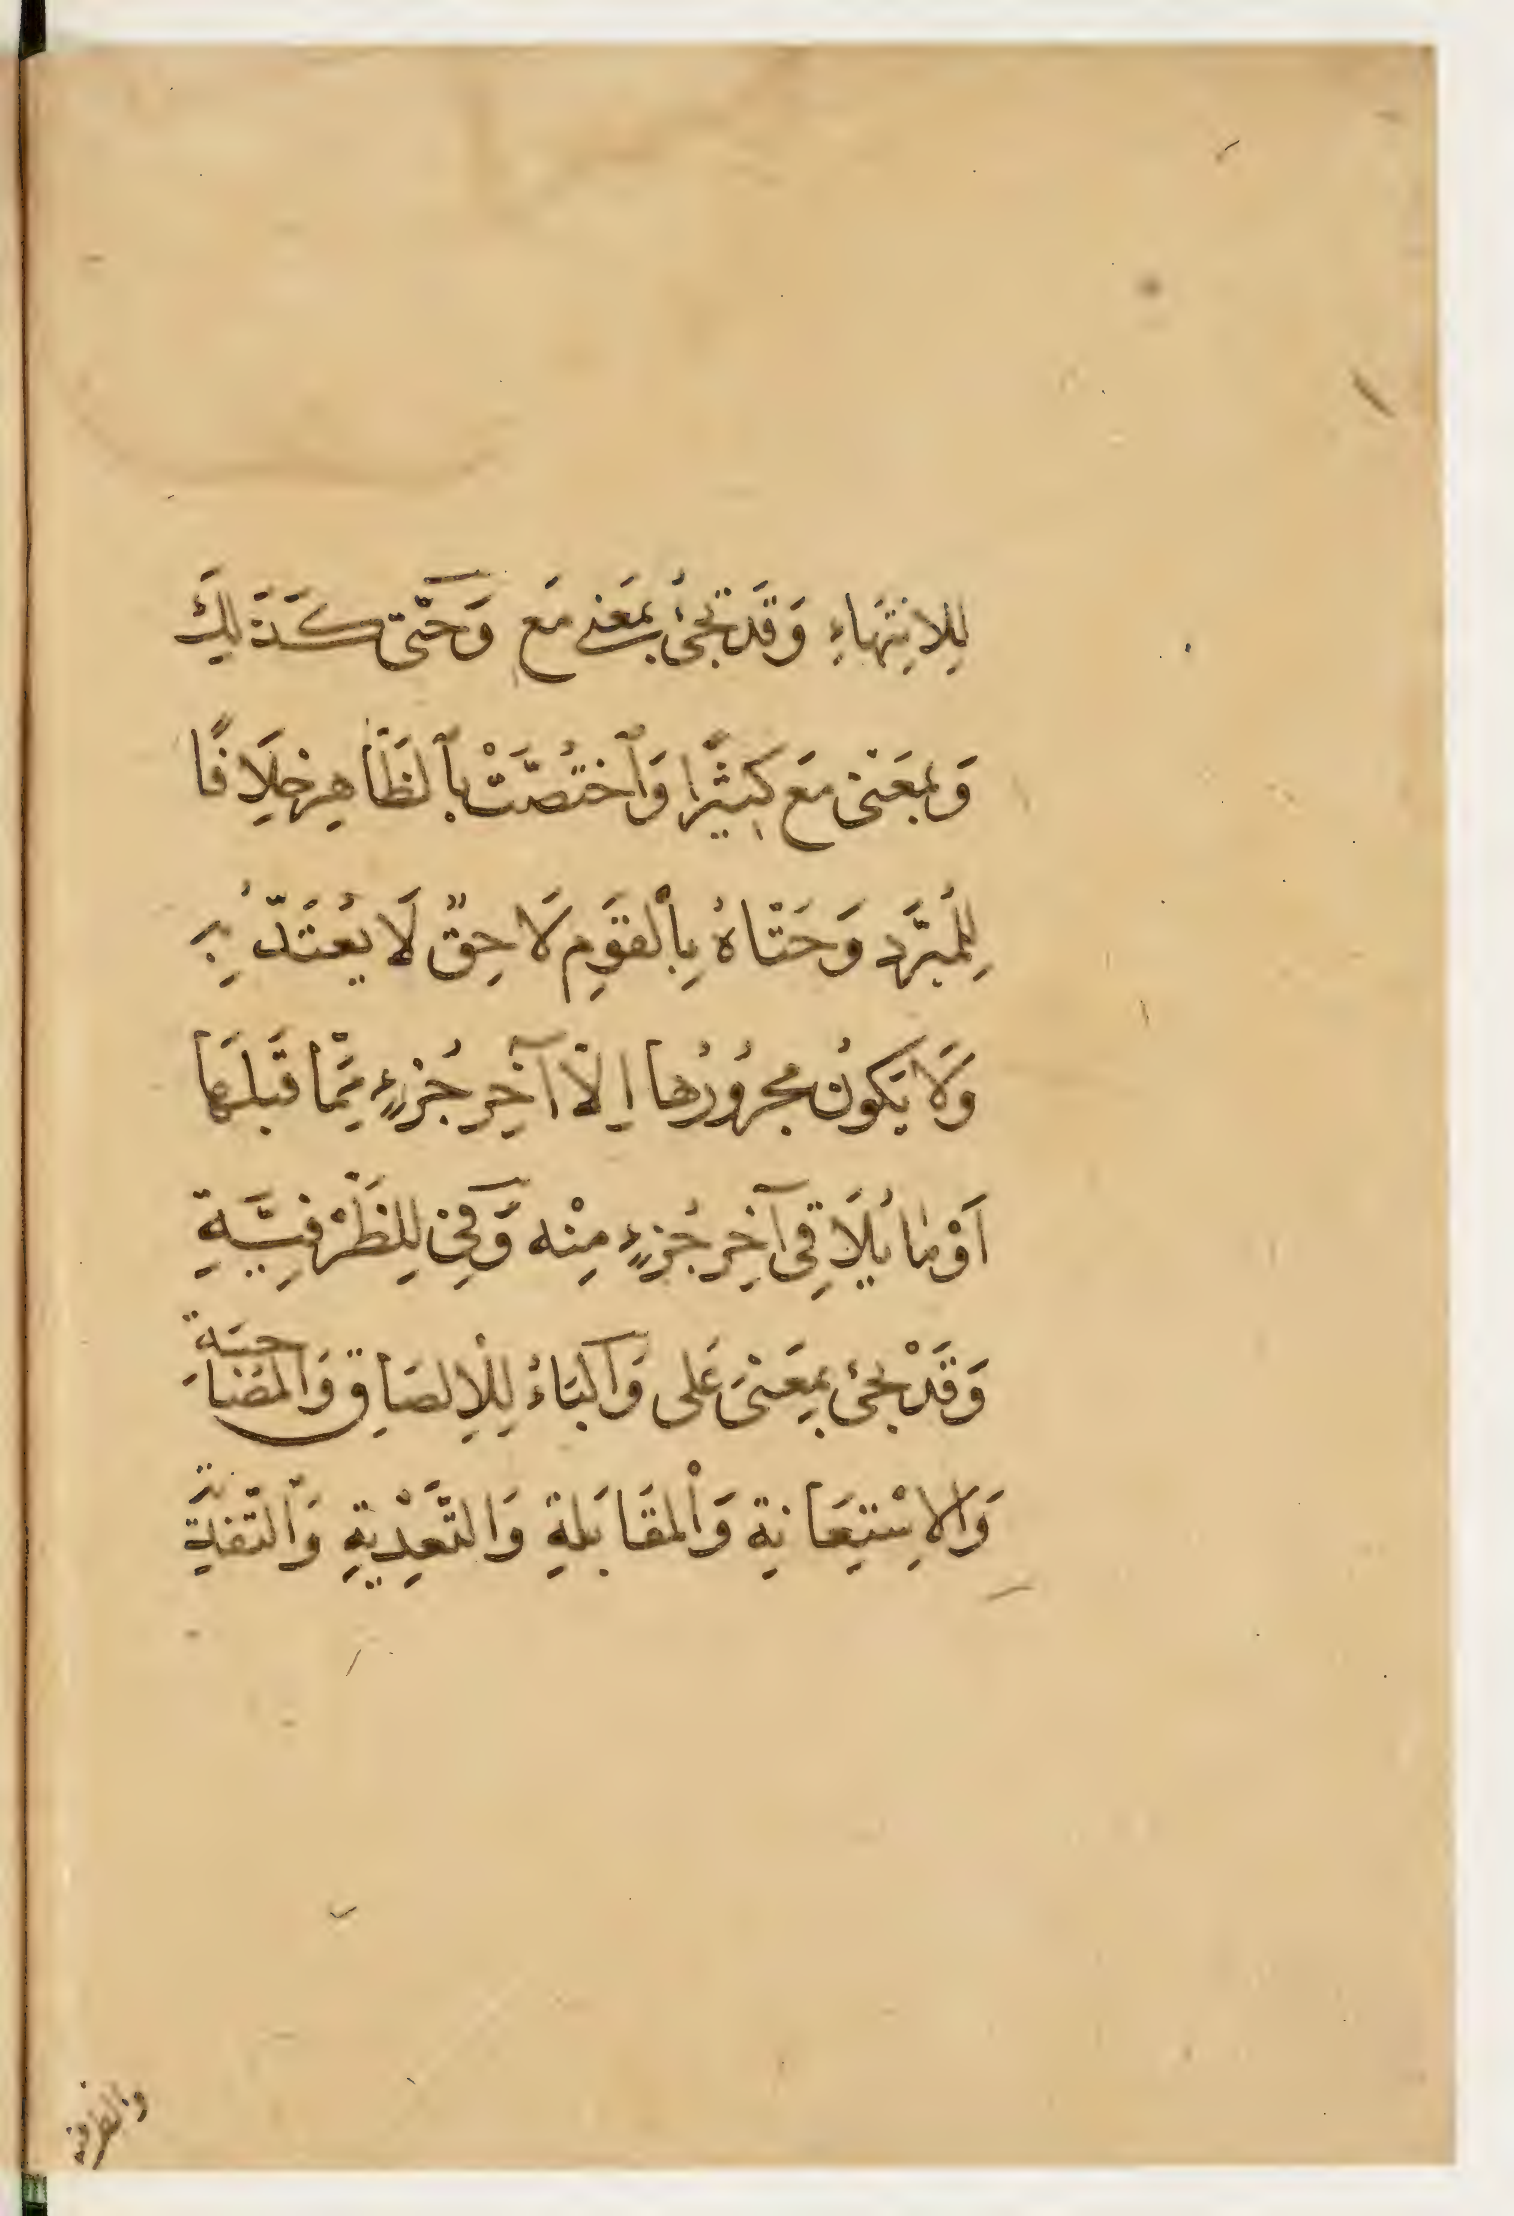 لِلِانْتِهَاءِ وَقَدْ تَجِئُ بِمَعْنٰى مَعَ وَحَتّٰى كَذَلِكَ
وَبِمَعْنٰى مَعَ كَثِيْرًا وَٱخْتُصَّتْ بِٱلظَّاهِرِ خِلَافًا
لِلْمُبَرَّدِ وَحَتَّاهُ بِالْقَوَمِ لَاحِقٌ لَا يُعْتَدُّ بِهِ
وَلَا يَكُوْنُ مَجْرُوْرُهَا اِلَّا آخِرِ جُزْءٍ مِمَّا قَبْلَهَا
اَوْ مَا يُلَاقِى آخِرِ جُزْءٍ مِنْه وَفِى لِلظَّرْفِيَّةِ
وَقَدْ تجئ بِمَعْنٰى عَلى وَالْبَاءُ لِلْاِلصَاقِ وَالْمُصَاحَبَةِ
وَالاِسْتِعَانَةِ وَالْمُقَابَلَةِ وَالتَّعْدِيَةِ وَالتَّفْدِيَةِ
والظرفية